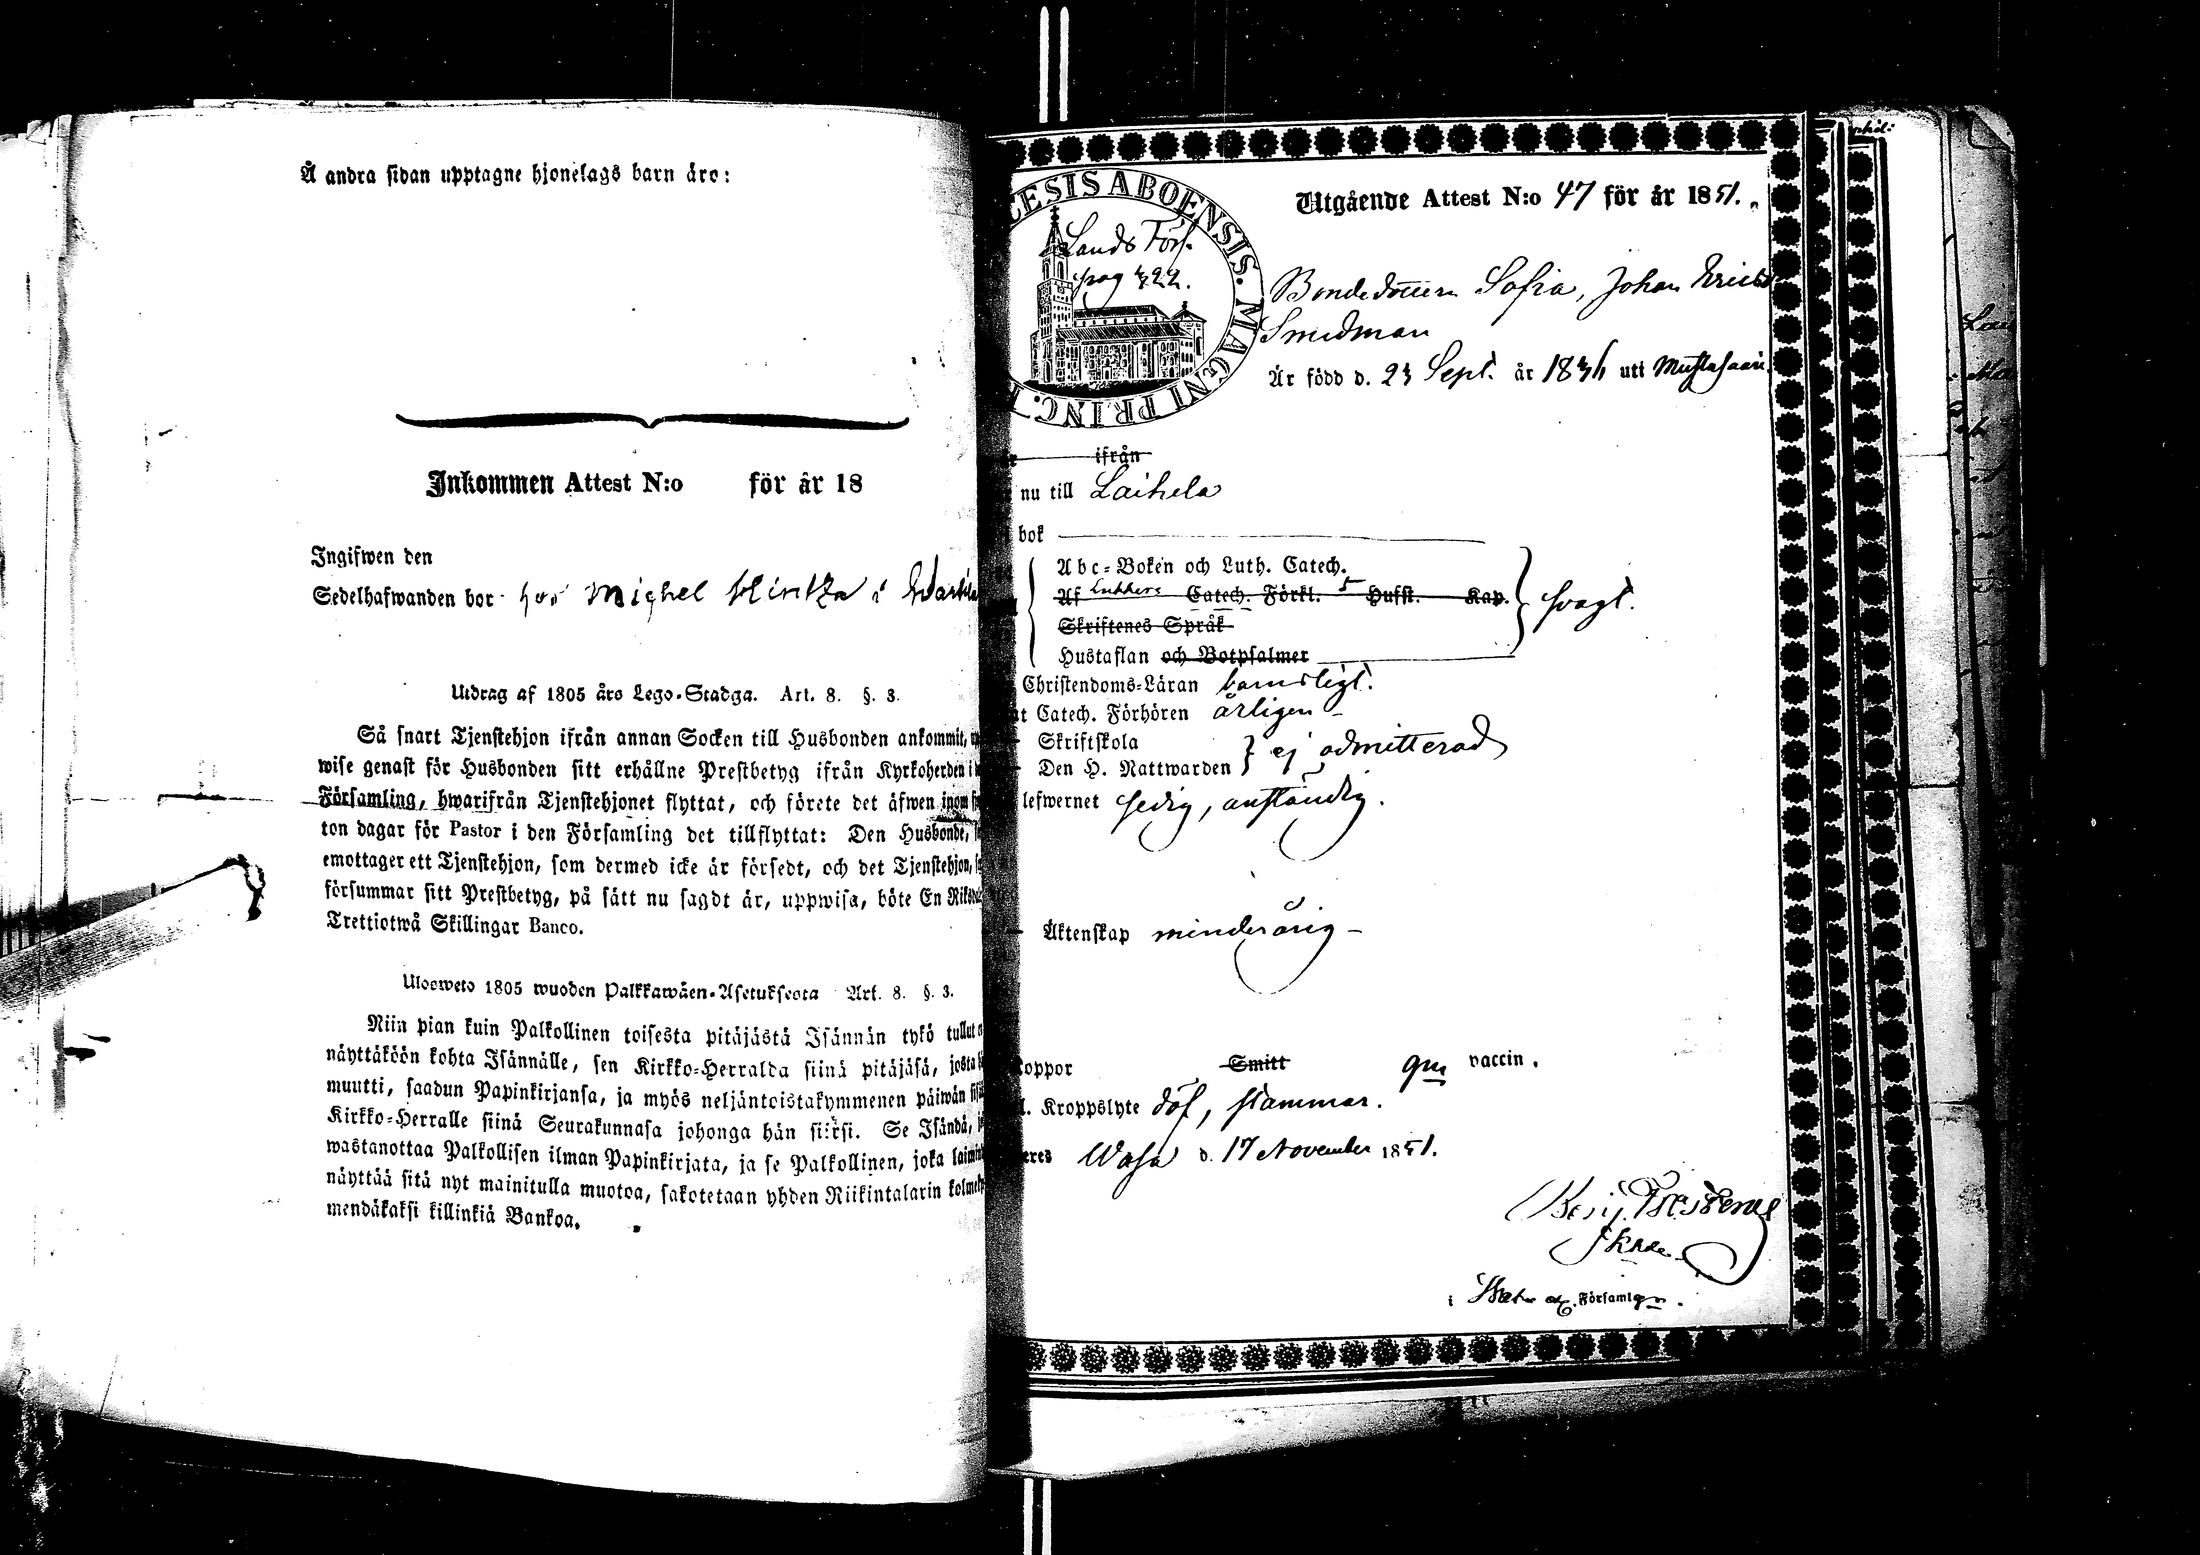 Å andra sidan upptagne hjonelags barn äro:
Inkommen Attest N:o för år 18
Ingifwen den
Sedelhafwanden bor hos Michel Hintza i
Utdrag af 1805 års Lego-Stadga. Art. 8. §. 3.
Så snart Tjenstehjon ifrån annan Socken till Husbonden ankommit,
wise genast för Husbonden sitt erhållne Prestbetyg ifrån Kyrkoherden i
Församling, hwarifrån Tjenstehjonet flyttat, och förete det äfwen inom
ton dagar för Pastor i den Församling det tillflyttat: Den Husbonde,
emottager ett Tjenstehjon, som dermed icke är försedt, och det Tjenstehjon,
försummar sitt Prestbetyg, på sätt nu sagdt är, uppwisa, böte En
Trettiotwå Skillingar Banco.
Ulosweto 1805 wuoden Palkkawäen-Asetuksesta Art. 8. §. 3.
Niin pian kuin Palkollinen toisesta pitäjästä Isännän tykö tullut
näyttäköön kohta Isännälle, sen Kirkko-Herralda siinä pitäjäsä, josta
muutti, saadun Papinkirjansa, ja myös neljäntoistakymmenen päiwän
Kirkko-Herralle siinä Seurakunnasa johonga hän siirsi. Se Isändä,
wastanottaa Palkollisen ilman Papinkirjata, ja se Palkollinen, joka
näyttää sitä nyt mainitulla muotoa, sakotetaan yhden Riikintalarin
mendäkaksi killinkiä Bankoa.
CESIS ABOENSIS. MAGNI PRINC.
Lands Förs.
pag 322.
Utgående Attest N:o 47 för år 1851.
Bondedottern Sofia, Johan Ericsd
Smedman
Är född d. 23 Sept. år 1836 uti Mustasaari
ifrån
nu till Laihela
bok
Abc-Boken och Luth. Catech.
Af Luthers Catech. Förkl. 5 Hufst. Kap.
Skriftenes Språk
Hustaflan och Botpsalmer
svagt.
Christendoms-Läran barnsligt.
Catech. Förhören årligen
Skriftskola
Den H. Nattwarden } ej admitterad
lefwernet sedig, anständig.
Äktenskap minderårig
koppor Smitt gm vaccin.
Kroppslyte döf, stammar.
Wasa d. 17 November 1851.
i Församlgn.